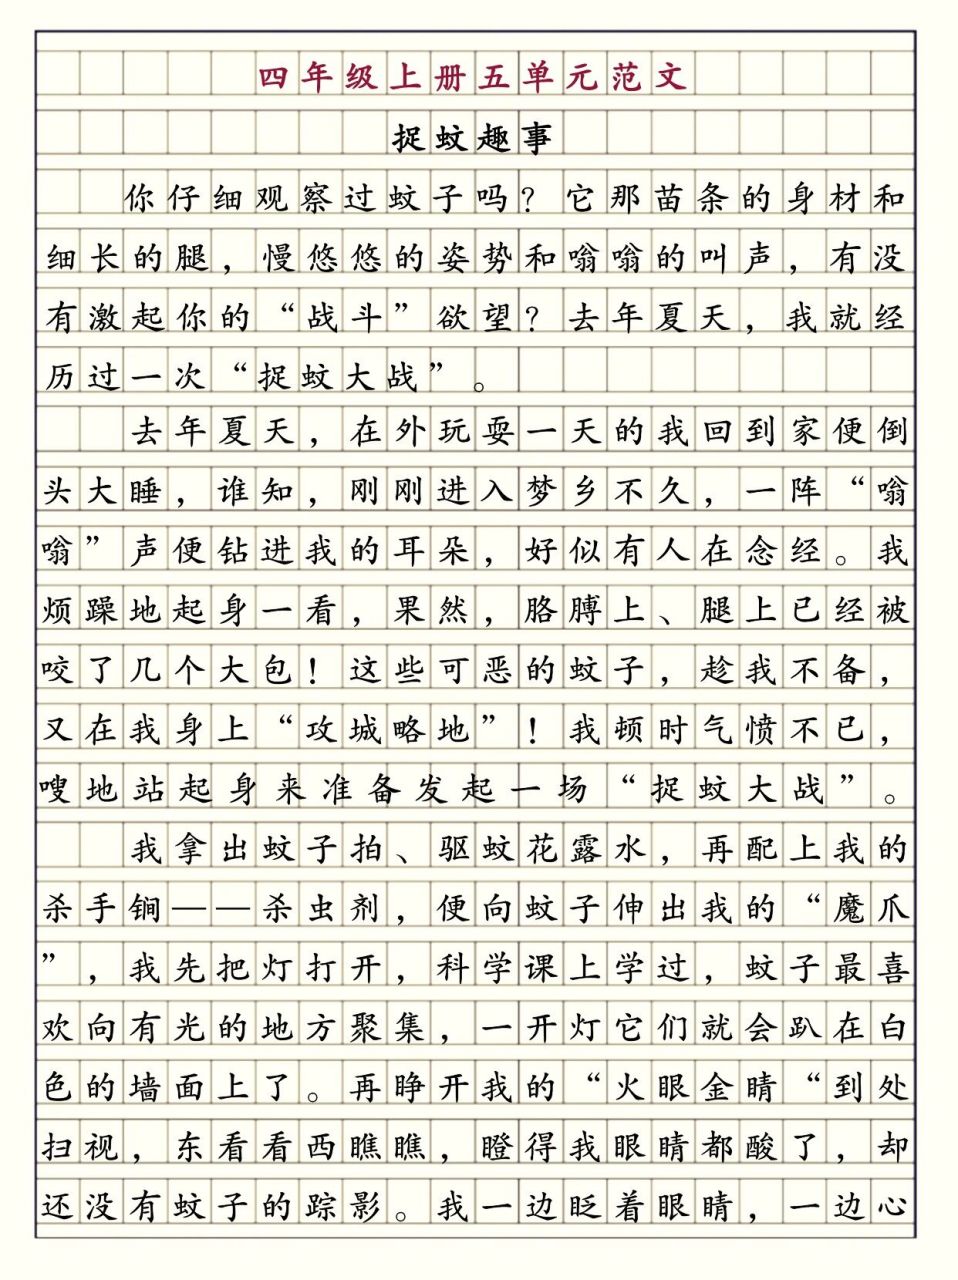 四年级上册五单元范文
捉蚊趣事
你仔细观察过蚊子吗？它那苗条的身材和
细长的腿，慢悠悠的姿势和嗡嗡的叫声，有没
有激起你的“战斗”欲望？去年夏天，我就经
历过一次“捉蚊大战”。
去年夏天，在外玩耍一天的我回到家便倒
头大睡，谁知，刚刚进入梦乡不久，一阵“嗡
嗡”声便钻进我的耳朵，好似有人在念经。我
烦躁地起身一看，果然，胳膊上、腿上已经被
咬了几个大包！这些可恶的蚊子，趁我不备，
又在我身上“攻城略地”！我顿时气愤不已，
嗖地站起身来准备发起一场“捉蚊大战”。
我拿出蚊子拍、驱蚊花露水，再配上我的
杀手锏——杀虫剂，便向蚊子伸出我的“魔爪
”，我先把灯打开，科学课上学过，蚊子最喜
欢向有光的地方聚集，一开灯它们就会趴在白
色的墙面上了。再睁开我的“火眼金睛“到处
扫视，东看看西瞧瞧，瞪得我眼睛都酸了，却
还没有蚊子的踪影。我一边眨着眼睛，一边心